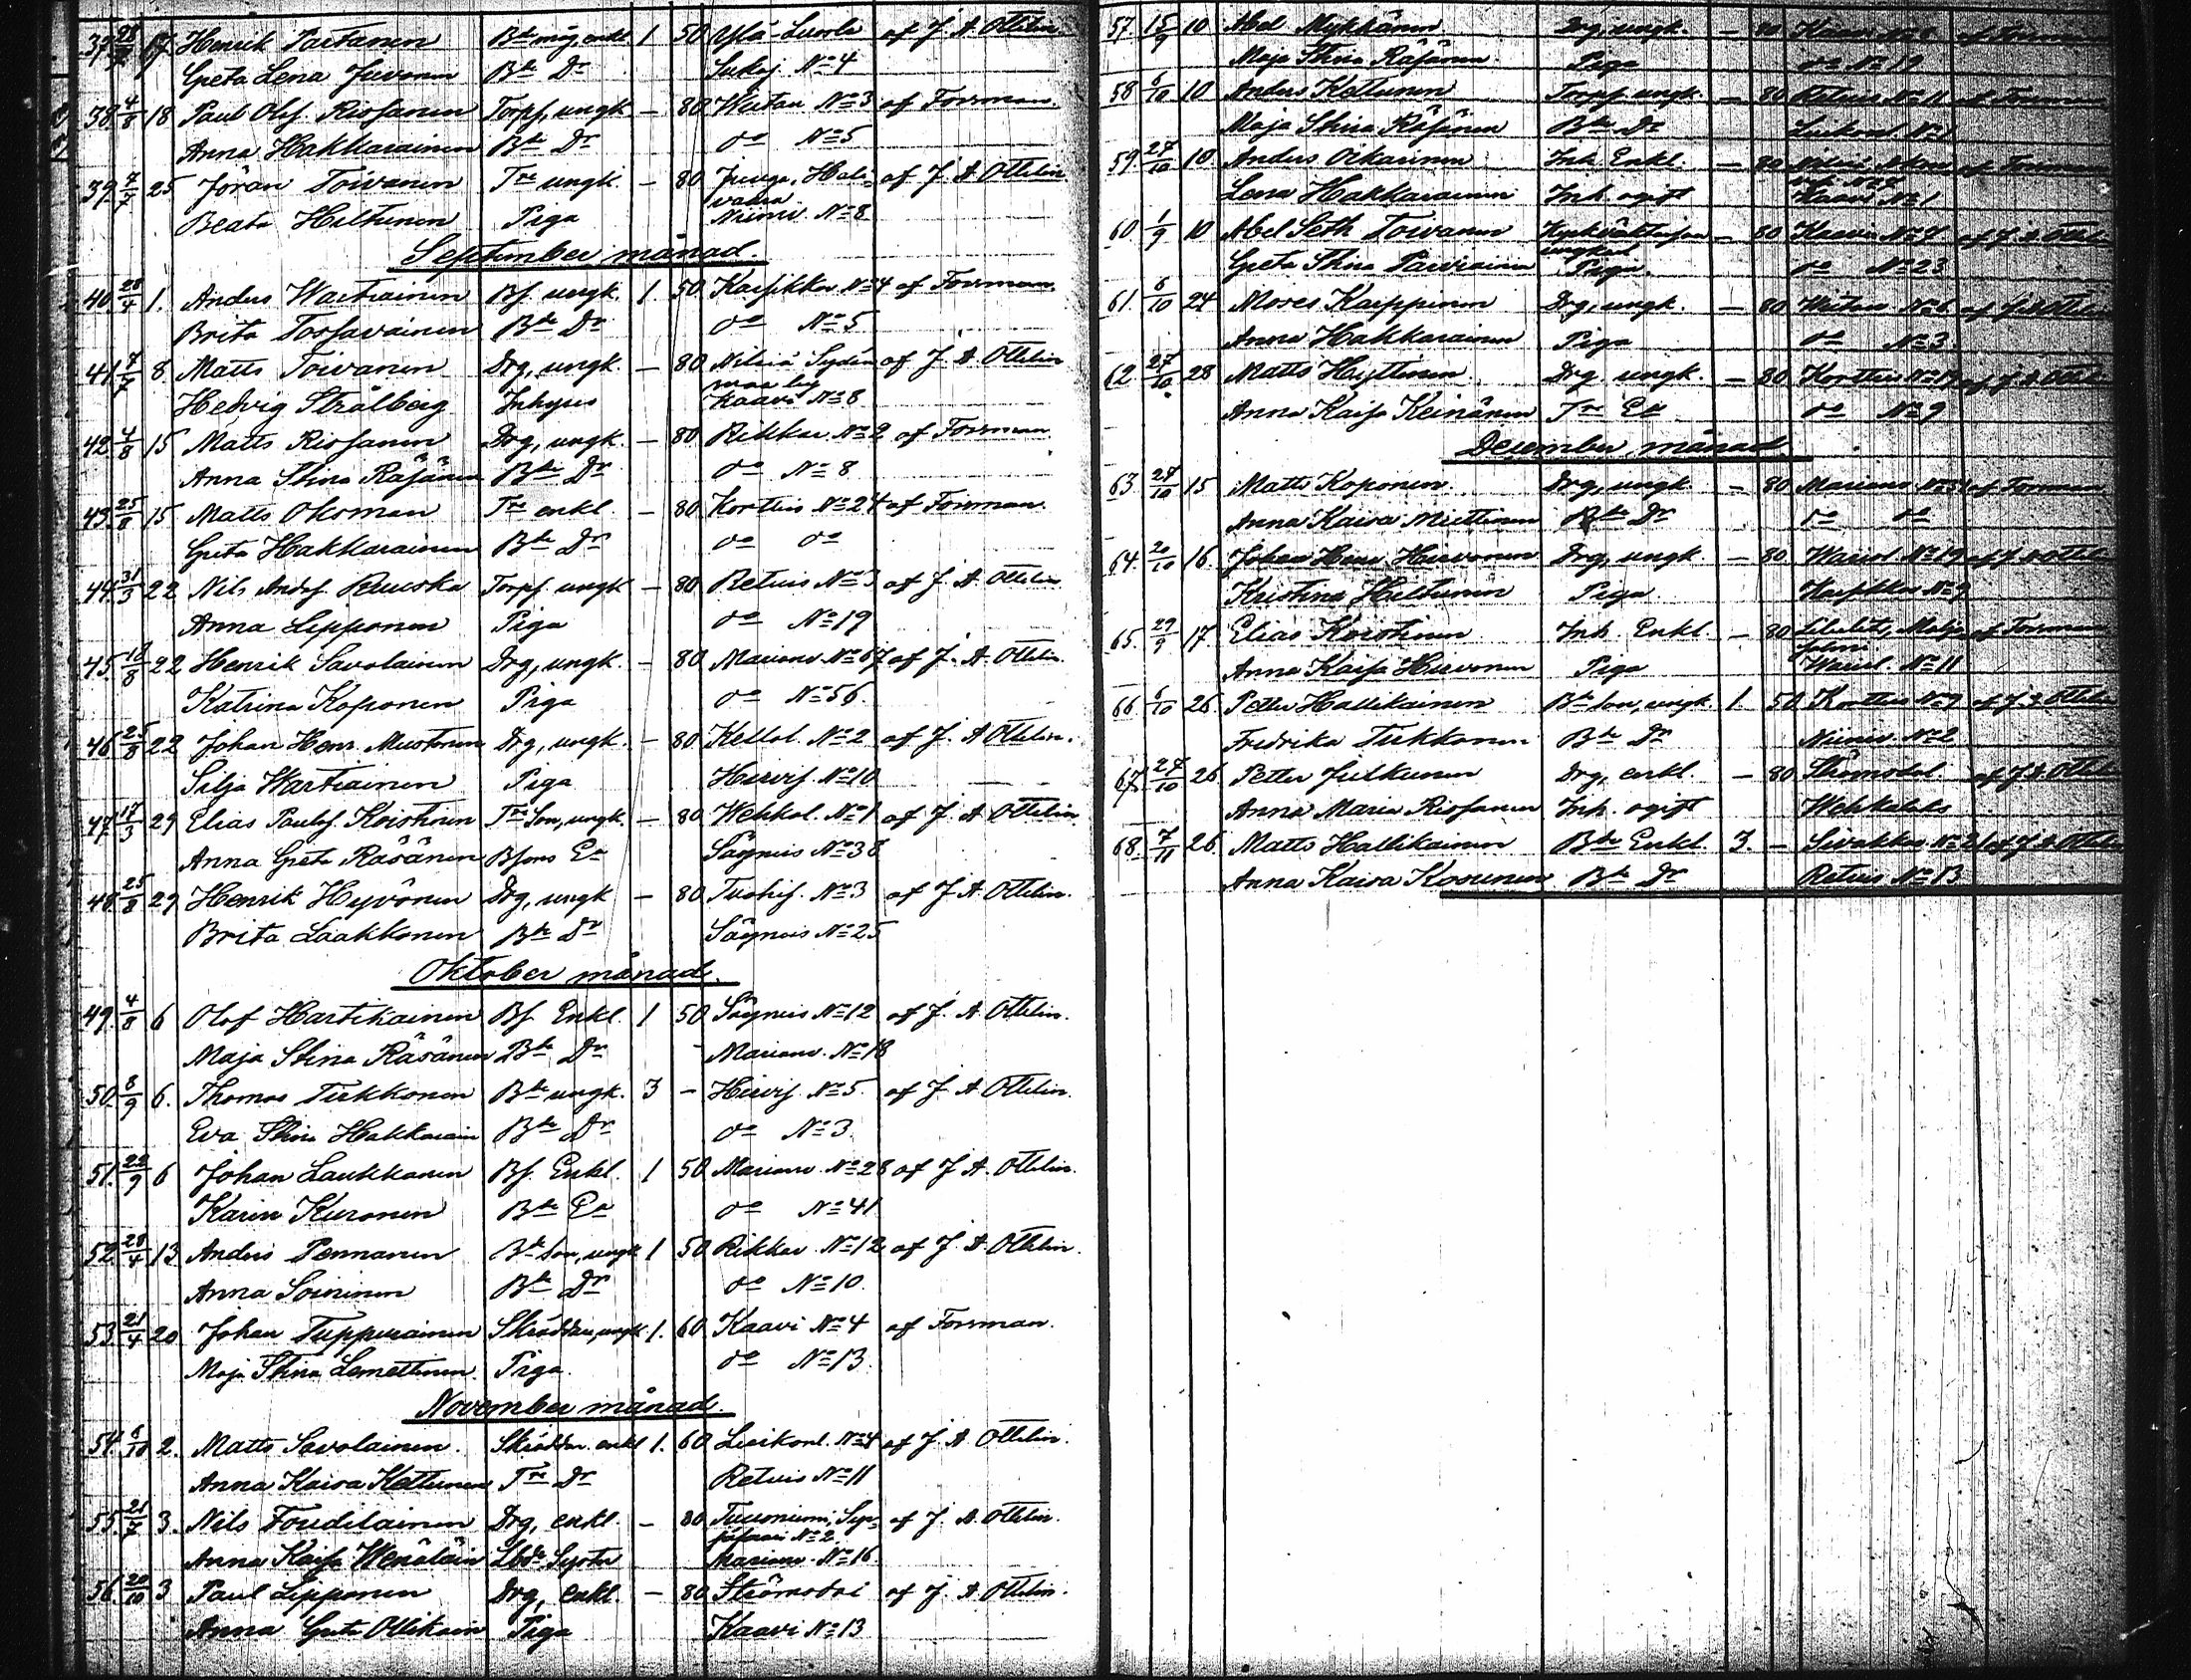 37. 28/7 17 Henrik Partanen Bde måg, enkl. 1 50 Ylä-Luosta af J. A. Ottelin.
Greta Lena Juvonen Bde Dr Sukej. No 4
38. 4/8 18 Paul Olof Riosanen Torp, ungk. — 80 Wiitan. No 3 af Forsman.
Anna Hakkarainen Bde Dr do No 5
39. 7/7 25 Jöran Toivanen Tre ungk. — 80 Juuga, Hali- af J. A. Ottelin
vaara
Beata Hiltunen Piga Niiniv. No 8
September månad.
40. 28/4 1. Anders Wartiainen Bf. ungk. 1. 50 Karsikko No 4 af Forsman.
Brita Torsavainen Bde Dr do No 5
41. 7/7 8. Matts Toivanen Drg, ungk. — 80 Nilsiä Sydän- af J. A. Ottelin
maa by
Hedvig Strålberg Inhyses Kaavi No 8
42. 4/8 15 Matts Riosanen Drg, ungk. — 80 Rikkav. No 2 af Forsman.
Anna Stina Räsänen Bde Dr do No 8
43. 25/8 15 Matts Okoman Tre enkl. — 80 Korteis No 24 af Forsman.
Greta Hakkarainen Bde Dr do do
44. 31/3 22 Nils Andsf. Ruuska Torpf. ungk. — 80 Retuis No 3 af J. A. Ottelin.
Anna Lipponen Piga do No 19
45. 18/8 22 Henrik Savolainen Drg, ungk. — 80 Marianv. No 67 af J. A. Ottelin.
Katrina Koponen Piga do No 56.
46. 25/8 22 Johan Henr. Mustonen Drg, ungk. — 80 Kellol. No 2 af J. A. Ottelin.
Silja Wartiainen Piga Hirvij. No 10
47. 17/3 29 Elias Paulsf. Koistinen Tre Son, ungk. — 80 Wehkal. No 1 af J. A. Ottelin
Anna Greta Räsänen Bfons Ea Säyneis No 38
48. 25/8 29 Henrik Hyvönen Drg, ungk. — 80 Tuohij. No 3 af J. A. Ottelin.
Brita Laakkonen Bde Dr Säyneis No 25
Oktober månad.
49. 4/8 6 Olof Hartikainen Bf. Enkl. 1 50 Säyneis No 12 af J. A. Ottelin.
Maja Stina Räsänen Bde Dr Marianv. No 18
50. 8/9 6. Thomas Tirkkonen Bde ungk. 3 — Hirvij. No 5. af J. A. Ottelin.
Eva Stina Hakkarain Bde Dr do No 3.
51. 22/9 6 Johan Laukkanen Bf. Enkl. 1 50 Marianv. No 28 af J. A. Ottelin.
Karin Kuronen Bde Ea do No 41
52. 28/4 13 Anders Pennanen Bde son, ungk. 1 50 Rikkav. No 12 af J. A. Ottelin.
Anna Soininen Bde Dr do No 10.
53. 21/4 20 Johan Tuppurainen Skräddare, ungk. 1. 60 Kaavi No 4 af Forsman.
Maja Stina Lemettinen. Piga. do No 13.
November månad.
54. 6/10 2. Matts Savolainen. Skräddar. enkl. 1. 60 Luikonl. No 4 af J. A. Ottelin.
Anna Kaisa Kettunen Tre Dr Retuis No 11
55. 21/7 3. Nils Foudilainen Drg, enkl. — 80 Tuusniemi, af J. A. Ottelin.
No 2.
Anna Kaisa Wenäläin Lbde Syster Marianv. No 16.
56. 20/10 3 Paul Lipponen Drg, enkl. — 80 Strömsdal af J. A. Ottelin.
Anna Greta Ollikain Piga Kaavi No 13
57. 15/9 10 Abel Mykkänen Drg, ungk. — 80 Kaavi No 8 af Forsman
Maja Stina Räsänen Piga do No 19
58. 6/10 10 Anders Kettunen Torpf. ungk. — 80 Retuis No 11 af Forsman
Maja Stina Räsänen Bde Dr Luikonl. No 1
59. 27/10 10. Anders Oikarinen Inh. Enkl. — 80 Nilsiä af Forsman
Lena Hakkarainen Inh. ogift Kaavi No 1
60. 1/9 10 Abel Seth Toivanen Kyrkväktareson — 80 Kaavi No 9 af J. A. Ottelin
ungkarl
Greta Stina Parviainen Piga. do No 23
61. 6/10 24 Moses Karppinen Drg, ungk. — 80 Wiitan. No 6. af J. A. Ottelin
Anna Hakkarainen Piga do No 3.
62. 27/10 28 Matts Hyttinen. Drg. ungk. — 80 Korteis No 19 af J. A. Ottelin
Anna Kaisa Keinänen Tre Ea do No 9
December månad.
63. 27/10 15 Matts Koponen. Drg, ungk. — 80 Marianv. No 31 af Forsman
Anna Kaisa Miettinen Bde Dr do do
64. 20/10 16. Johan Henr. Hirvonen Drg, ungk. — 80 Waivol. No 19 af J. A. Ottelin
Kristina Hiltunen Piga Karsikko No 9
65. 29/9 17. Elias Koistinen Inh. Enkl. — 80 Libelits, af Forsman
Anna Kaisa Hirvonen Piga Waivol. No 11
66. 6/10 26. Petter Hallikainen Bde Son, ungk. 1. 50 Korteis No 9 af J. A. Ottelin
Fredrika Tirkkonen Bde Dr Niiniv. No 2
67. 27/10 26 Petter Julkunen Drg, enkl. — 80 Strömsdal. af J. A. Ottelin
Anna Maria Riosanen Inh. ogift Wehkalaks
68. 7/11 26. Matts Hallikainen Bde Enkl. 3. — Sivakkav. No 21 af J. A. Ottelin
Anna Kaisa Kosunen Bde Dr Retuis No 13